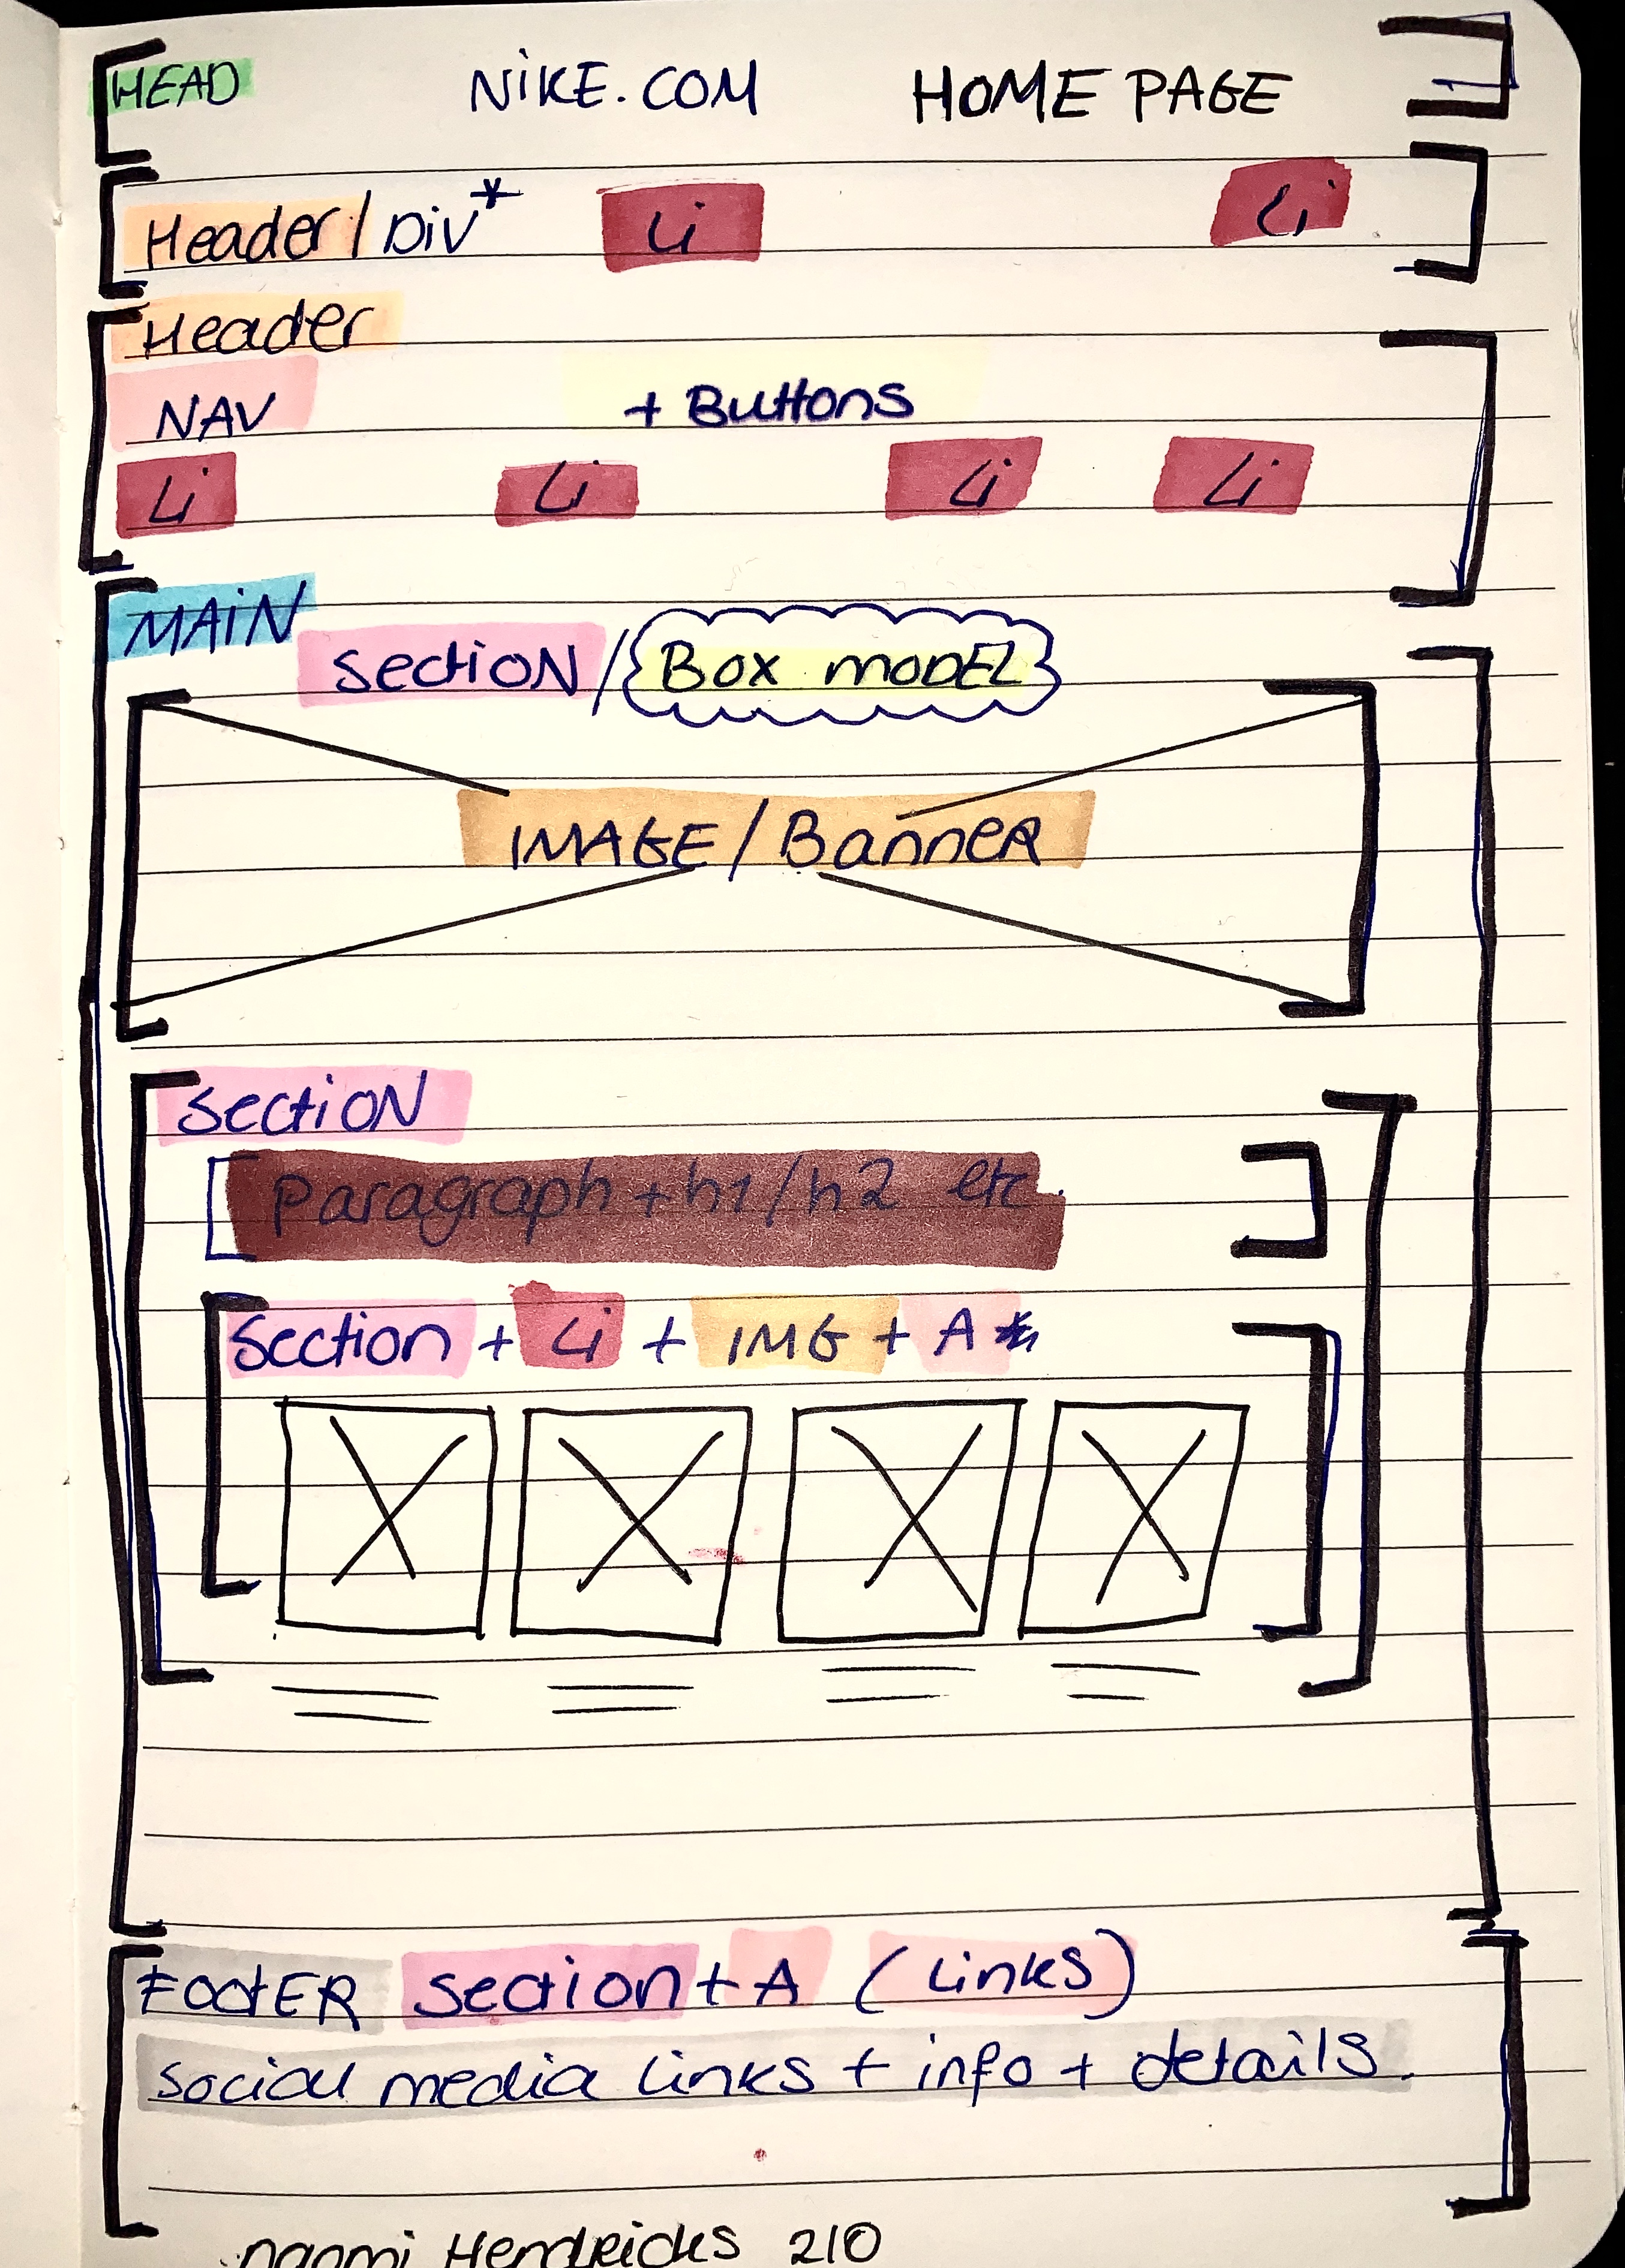 HEAD NiKE.COM HOME PAGE
Header / Div* Li Li
Header
NAV + Buttons
Li Li Li Li
MAiN
section / Box moDEL
IMAGE / BanneR
sectioN
Paragraph + h1/h2 etc.
Section + Li + IMG + A
FootER section + A (Links)
social media links + info + details.
naomi Hendricks 210